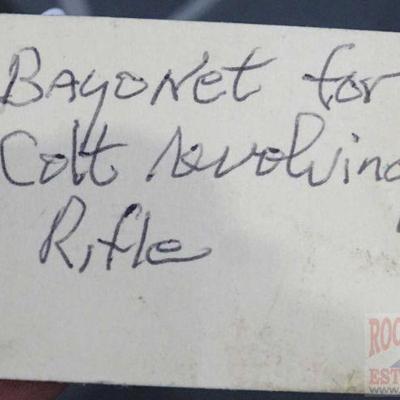 Bayonet for
Colt revolving
Rifle
ROC
EST
www.